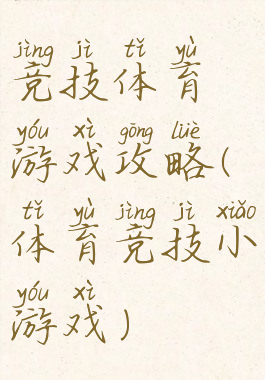 jìng jì tǐ yù
竞技体育
yóu xì gōng lüè
游戏攻略(
tǐ yù jìng jì xiǎo
体育竞技小
yóu xì
游戏)